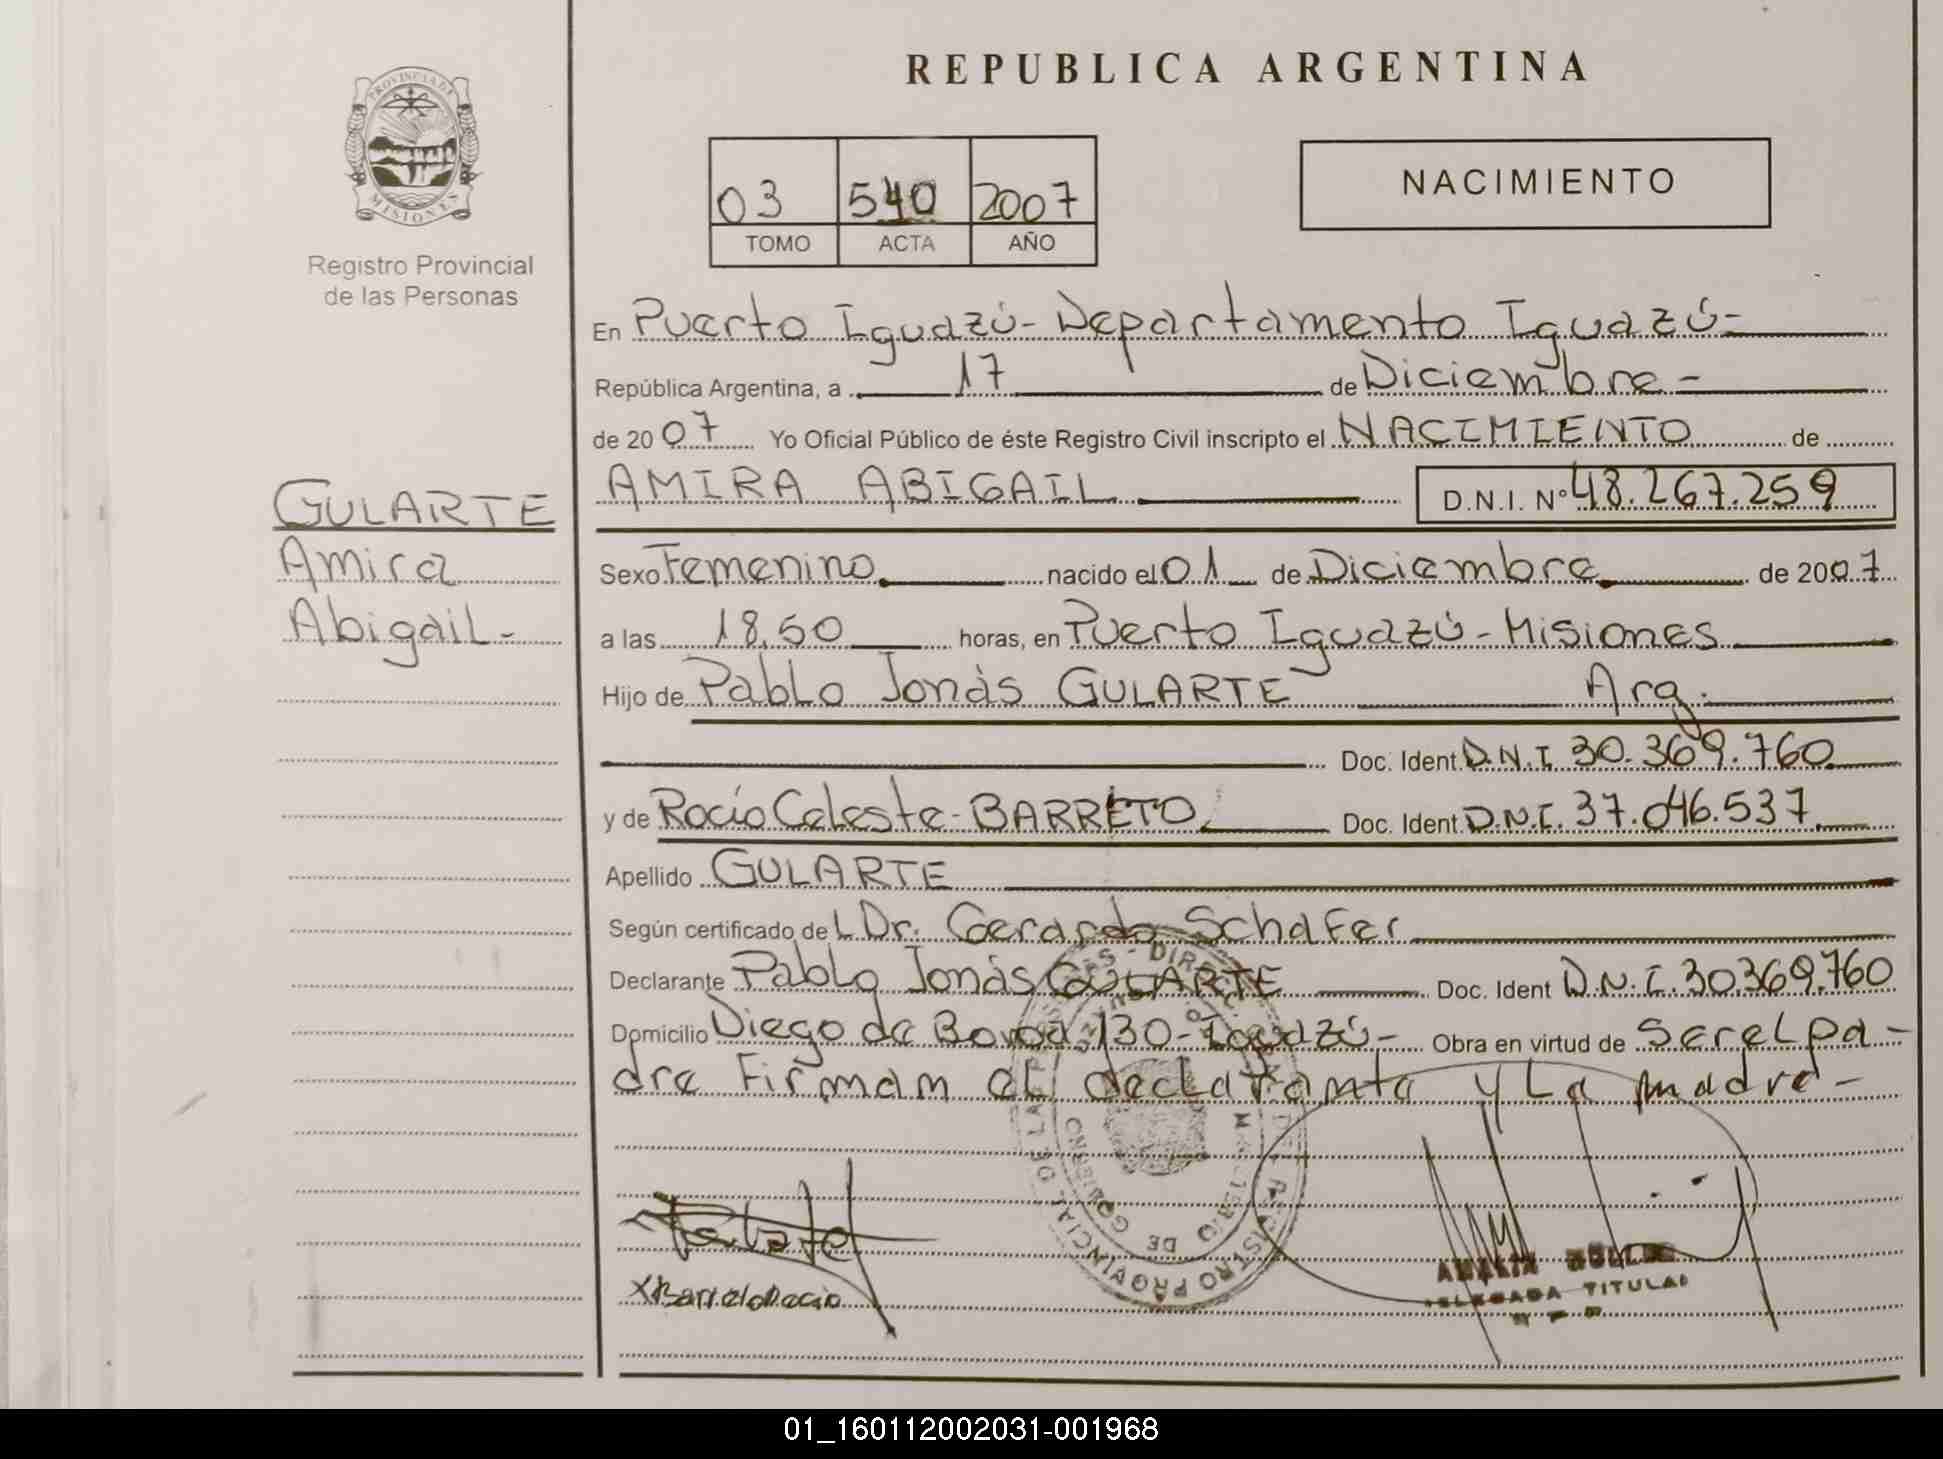 REPUBLICA ARGENTINA
PROVINCIA DE MISIONES
Registro Provincial
de las Personas
03 540 2007
TOMO ACTA AÑO
NACIMIENTO
En Puerto Iguazú - Departamento Iguazú -
República Argentina, a 17 de Diciembre -
de 2007 Yo Oficial Público de éste Registro Civil inscripto el NACIMIENTO de
AMIRA ABIGAIL D.N.I. Nº 48.267.259
GULARTE
Amira
Abigail -
Sexo Femenino nacido el 01 de Diciembre de 2007
a las 18,50 horas, en Puerto Iguazú - Misiones
Hijo de Pablo Jonás GULARTE Arg.
Doc. Ident D.N.I 30.369.760
y de Rocío Celeste - BARRETO Doc. Ident D.N.I. 37.046.537
Apellido GULARTE
Según certificado de L Dr. Gerardo Schafer
Declarante Pablo Jonás GULARTE Doc. Ident D.N.I. 30369.760
Domicilio Diego de 130 - Iguazú - Obra en virtud de Ser el pa -
dre Firman el declarante y La madre -
REGISTRO PROVINCIAL DE LAS PERSONAS
MINISTERIO DE GOBIERNO
X Barreto Rocio
DELEGADA TITULAR
01_160112002031-001968